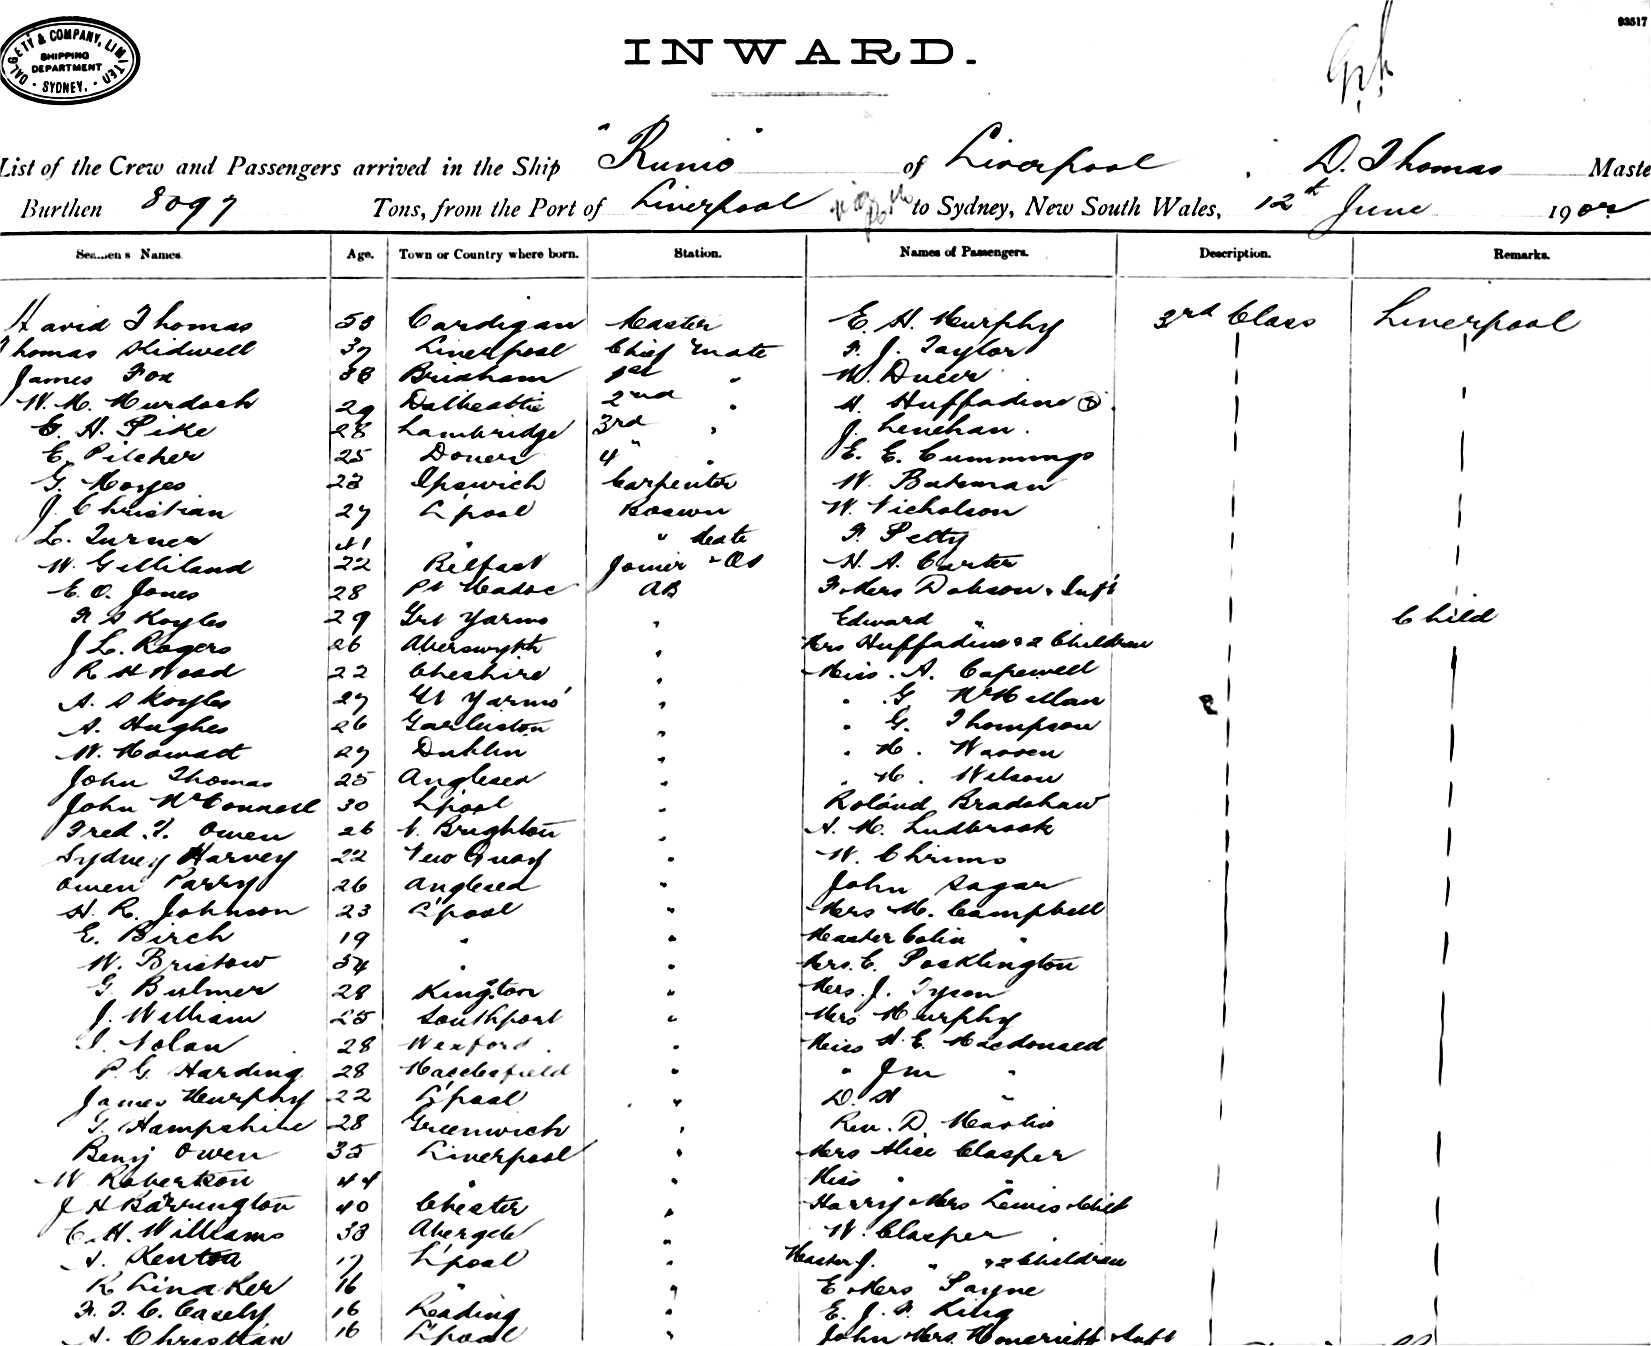 DALGETY & COMPANY, LIMITED
SHIPPING
DEPARTMENT
SYDNEY.
93517
INWARD.
List of the Crew and Passengers arrived in the Ship "Runic" of Liverpool, D. Thomas Maste
Burthen 8097 Tons, from the Port of Liverpool to Sydney, New South Wales, 12th June 190
Seamen's Names. Age. Town or Country where born. Station. Names of Passengers. Description. Remarks.
David Thomas 53 Cardigan Master E. H. Murphy 3rd Class Liverpool
Thomas Kidwell 37 Liverpool Chief Mate F. J. Taylor
James Fox 38 Brixham 1st " W. Ducer
W. M. Murdoch 29 Dalbeattie 2nd " H. Huffadine
C. H. Pike 28 Lambridge 3rd " J. Lenehan.
E. Pilcher 25 Dover 4" " E. E. Cummings
G. Moyes 23 Ipswich Carpenter W. Bateman
J. Christian 27 L'pool Boswn W. Nicholson
L. Turner 41 " " Mate F. Petty
W. Gelliland 22 Belfast Joiner & OS H. A. Carter
E. O. Jones 28 Pt Madoc AB F. & Mrs Dobson & Inft
F S Koyles 29 Grt Yarmo " Edward " Child
J L. Rogers 26 Aberswyth " Mrs Huffadine & 2 Children
R H Wood 22 Cheshire " Miss. A. Capewell
A. S Koyles 27 Gt Yarmo' " " G McMillan
A. Hughes 26 Garleston " " G. Thompson
W. Mowatt 27 Dublin " " M. Warren
John Thomas 25 Anglesea " " M. Wilson
John McConnell 30 L'pool " Roland Bradshaw
Fred. T. Owen 26 N. Brighton " A. M. Ludbrook
Sydney Harvey 22 New Quay " W. Chrims
Owen Parry 26 Anglesea " John Sagar
H. R. Johnson 23 L'pool " Mrs M. Campbell
E. Birch 19 " " Master Colin "
W. Bristow 34 " " Mrs. C. Pocklington
G. Bulmer 28 Kington " Mrs. J. Tyson
J. William 25 Southport " Mrs Murphy
J. Nolan 28 Wexford. " Miss H. E. Macdonald
P. G. Harding 28 Macclesfield " " "
James Murphy 22 L'pool " D. H "
G. Hampshire 28 Greenwich " Rev. D. Martin
Benj Owen 35 Liverpool " Mrs Alice Clasper
W Robertson 44 " " Miss " "
J H Barrington 40 Chester " Harry & Mrs Lewis & Child
C. H. Williams 33 Abergele " W. Clasper
A. Kenton 17 L'pool " Master J. " & 2 Children
R Linaker 16 " " E & Mrs Payne
F. T. C. Casely 16 Reading " E. J. F. King
A. Christian 16 L'pool " John & Mrs. Moncrieff & Inft